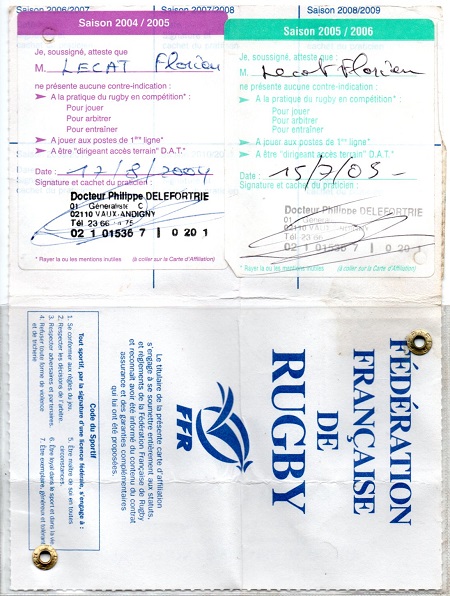 2006/2007
2007/2008
2008/2009
Saison 2004 / 2005
Je, soussigné, atteste que
M. LECAT Florien
ne présente aucune contre-indication :
A la pratique du rugby en compétition* :
Pour jouer
Pour arbitrer
Pour entraîner
A jouer aux postes de 1ère ligne*
A être "dirigeant accès terrain" D.A.T.*
Date : 17/8/2004
Signature et cachet du praticien :
Docteur Philippe DELEFORTRIE
01 Généraliste C
02110 VAUX-ANDIGNY
Tél 23 66 75
02 1 01536 7 | 0 20 1
* Rayer la ou les mentions inutiles (à coller sur la Carte d'Affiliation)
Saison 2005 / 2006
Je, soussigné, atteste que
M. Lecat Florien
ne présente aucune contre-indication :
A la pratique du rugby en compétition* :
Pour jouer
Pour arbitrer
Pour entraîner
A jouer aux postes de 1ère ligne*
A être "dirigeant accès terrain" D.A.T.*
Date : 15/7/05
Signature et cachet du praticien :
Docteur Philippe DELEFORTRIE
01 Généraliste C
02110 VAUX-ANDIGNY
Tél 23 66
02 1 01536 7 | 0 20 1
* Rayer la ou les mentions inutiles (à coller sur la Carte d'Affiliation)
FÉDÉRATION
FRANÇAISE
DE
RUGBY
FFR
Le titulaire de la présente carte d'affiliation
s'engage à se soumettre entièrement aux statuts,
et règlements de la Fédération Française de Rugby
et reconnaît avoir été informé du contenu du contrat
assurance et des garanties complémentaires
qui lui ont été proposées.
Code du Sportif
Tout sportif, par la signature d'une licence fédérale, s'engage à :
1. Se conformer aux règles du jeu.
2. Respecter les décisions de l'arbitre.
3. Respecter adversaires et partenaires.
4. Refuser toute forme de violence
et de tricherie
5. Être maître de soi en toutes
circonstances.
6. Être loyal dans le sport et dans la vie
7. Être exemplaire, généreux et tolérant